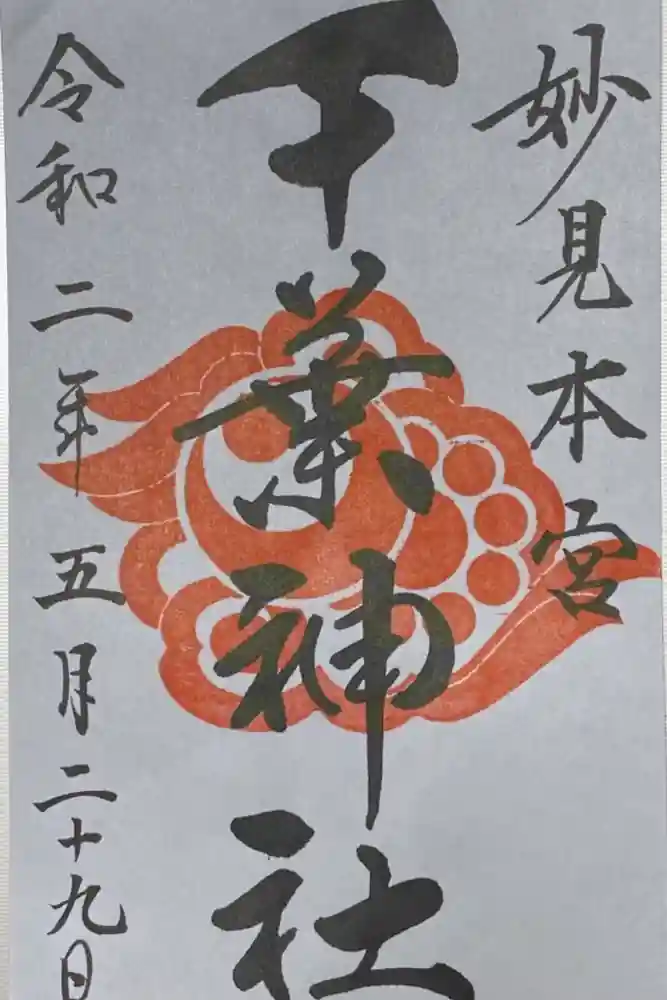 妙見本宮
千葉神社
令和二年五月二十九日